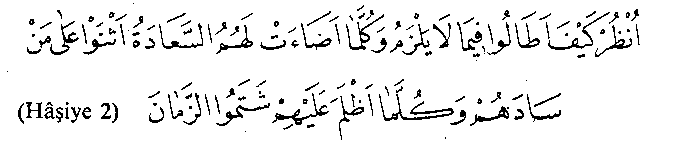 اُنْظُرْ كَيْفَ اَطَالُوا فِيمَا لَا يَلْزَمُ وَكُلَّمَا اَضَاءَتْ لَهُمُ السَّعَادَةُ اَثْنَوْا عَلَى مَنْ
سَادَهُمْ وَكُلَّمَا اَظْلَمَ عَلَيْهِمْ شَتَمُوا الزَّمَانَ (Hâşiye 2)